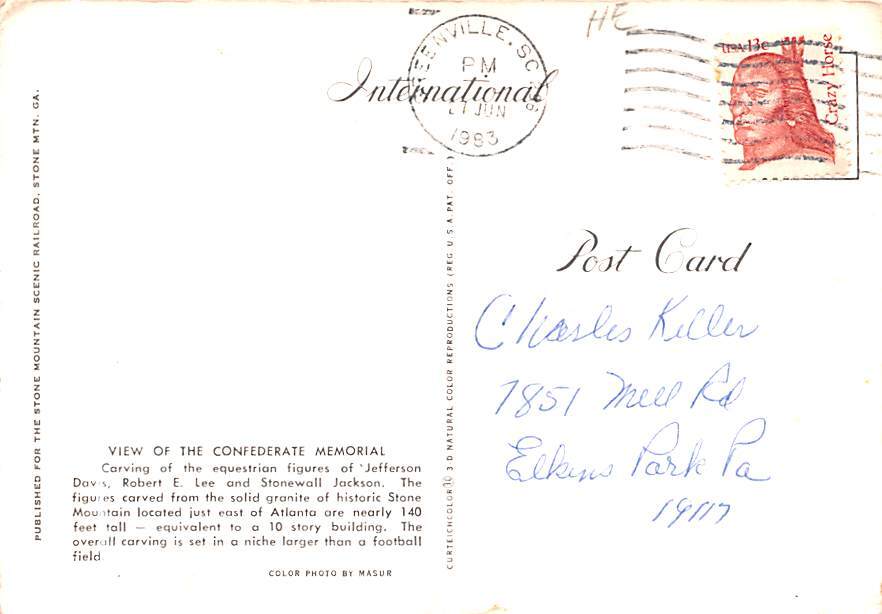 HE
GREENVILLE, SC
PM
21 JUN
1983
USA 13c
Crazy Horse
International
Post Card
Charles Keller
7851 Mill Rd
Elkins Park Pa
19117
PUBLISHED FOR THE STONE MOUNTAIN SCENIC RAILROAD, STONE MTN. GA.
CURTEICHCOLOR® 3 D NATURAL COLOR REPRODUCTIONS (REG U.S.A. PAT. OFF.)
VIEW OF THE CONFEDERATE MEMORIAL
Carving of the equestrian figures of Jefferson
Davis, Robert E. Lee and Stonewall Jackson. The
figures carved from the solid granite of historic Stone
Mountain located just east of Atlanta are nearly 140
feet tall — equivalent to a 10 story building. The
overall carving is set in a niche larger than a football
field
COLOR PHOTO BY MASUR